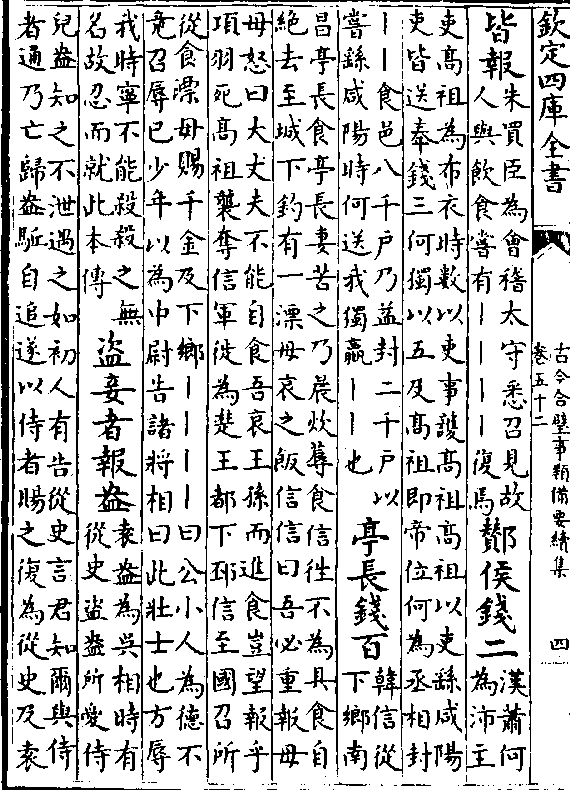 欽定四庫全書
古今合璧事類備要續集
卷五十二
四
皆報
朱買臣為㑹稽太守悉召見故
人與飲食嘗有||||復焉
酇侯錢二
漢蕭何
為沛主
吏髙祖為布衣時數以吏事護髙祖髙祖以吏繇咸陽
吏皆送奉錢三何獨以五及髙祖即帝位何為丞相封
||食邑八千戶乃益封二千戶以
嘗繇咸陽時何送我獨贏||也
亭長錢百
韓信從
下鄉南
昌亭長食亭長妻苦之乃晨炊蓐食信徃不為具食自
絶去至城下釣有一漂母哀之飯信信曰吾必重報母
母怒曰大丈夫不能自食吾哀王孫而進食豈望報乎
項羽死髙祖襲奪信軍徙為楚王都下邳信至國召所
從食漂母賜千金及下鄉||||曰公小人為德不
竟召辱已少年以為中尉告諸將相曰此壯士也方辱
我時寧不能殺殺之無
名故忍而就此本傳
盜妾者報盎
袁盎為吳相時有
從史盜盎所愛侍
兒盎知之不泄遇之如初人有告從史言君知爾與侍
者通乃亡歸盎驅自追遂以侍者賜之復為從史及袁